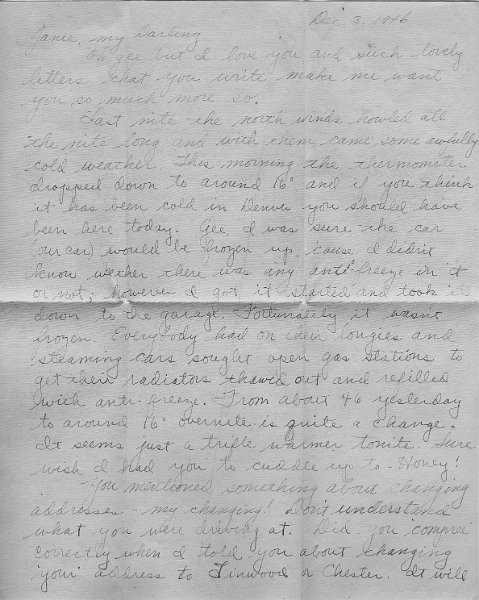 Dec. 3, 1946
Janie, my Darling
Oh gee but I love you and such lovely
letters that you write make me want
you so much more so.
Last nite the north winds howled all
the nite long and with them came some awfully
cold weather. This morning the thermometer
dropped down to around 16° and if you think
it has been cold in Denver you should have
been here today. Gee, I was sure the car
(our car) would be frozen up, 'cause I didn't
know wether there was any anti-freeze in it
or not; however I got it started and took it
down to the garage. Fortunately it wasn't
frozen. Everybody had on their longies and
steaming cars sought open gas stations to
get their radiators thawed out and refilled
with anti-freeze. From about 46 yesterday
to around 16° overnite is quite a change.
It seems just a trifle warmer tonite. Sure
wish I had you to cuddle up to - Honey!
You mentioned something about changing
addresses - my changing! Don't understand
what you were driving at. Did you 'compree'
correctly when I told you about changing
'your' address to Linwood or Chester. It will